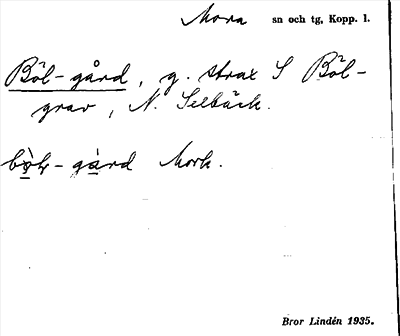 Mora sn och tg, Kopp. l.
Böl-gård, g. strax S Böl-
grav, N. Selbäck.
Mork.
Bror Lindén 1935.